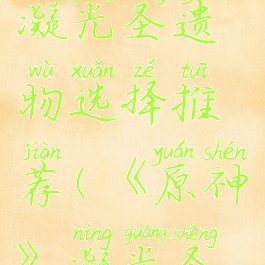 凝光圣遗
wù xuǎn zé tuī
物选择推
jiàn yuán shén
荐(《原神
níng guāng shèng
》凝光圣